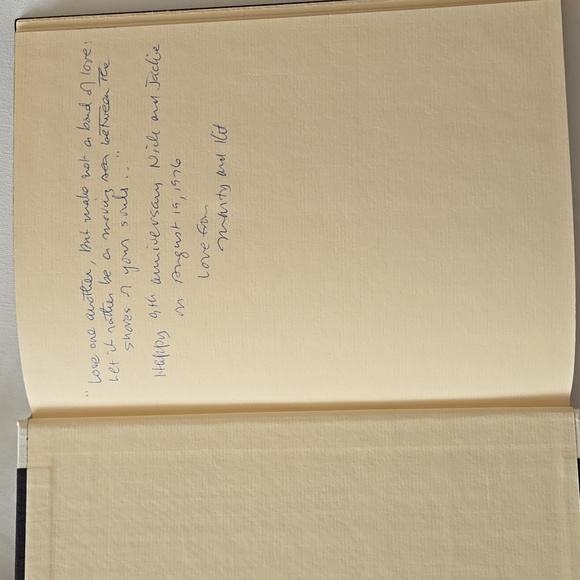 "Love one another, but make not a bond of love:
Let it rather be a moving sea between the
shores of your souls..."
Happy 9th anniversary Nick and Jackie
on August 19, 1976
Love from
Marty and Kit